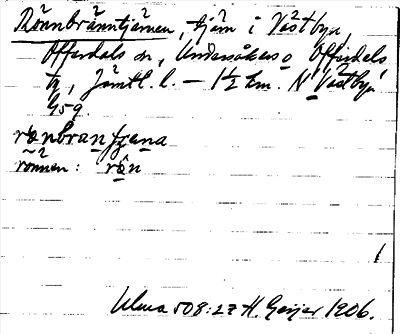 Rönnbränntjärnen, tjärn i Västbyn,
Offerdals sn, Undersåkers o Offerdals
tg, Jämtl. l. – 1½ km. N Västbyn
G59.
rönnen:
Ulma 508:27 H. Geijer 1906.